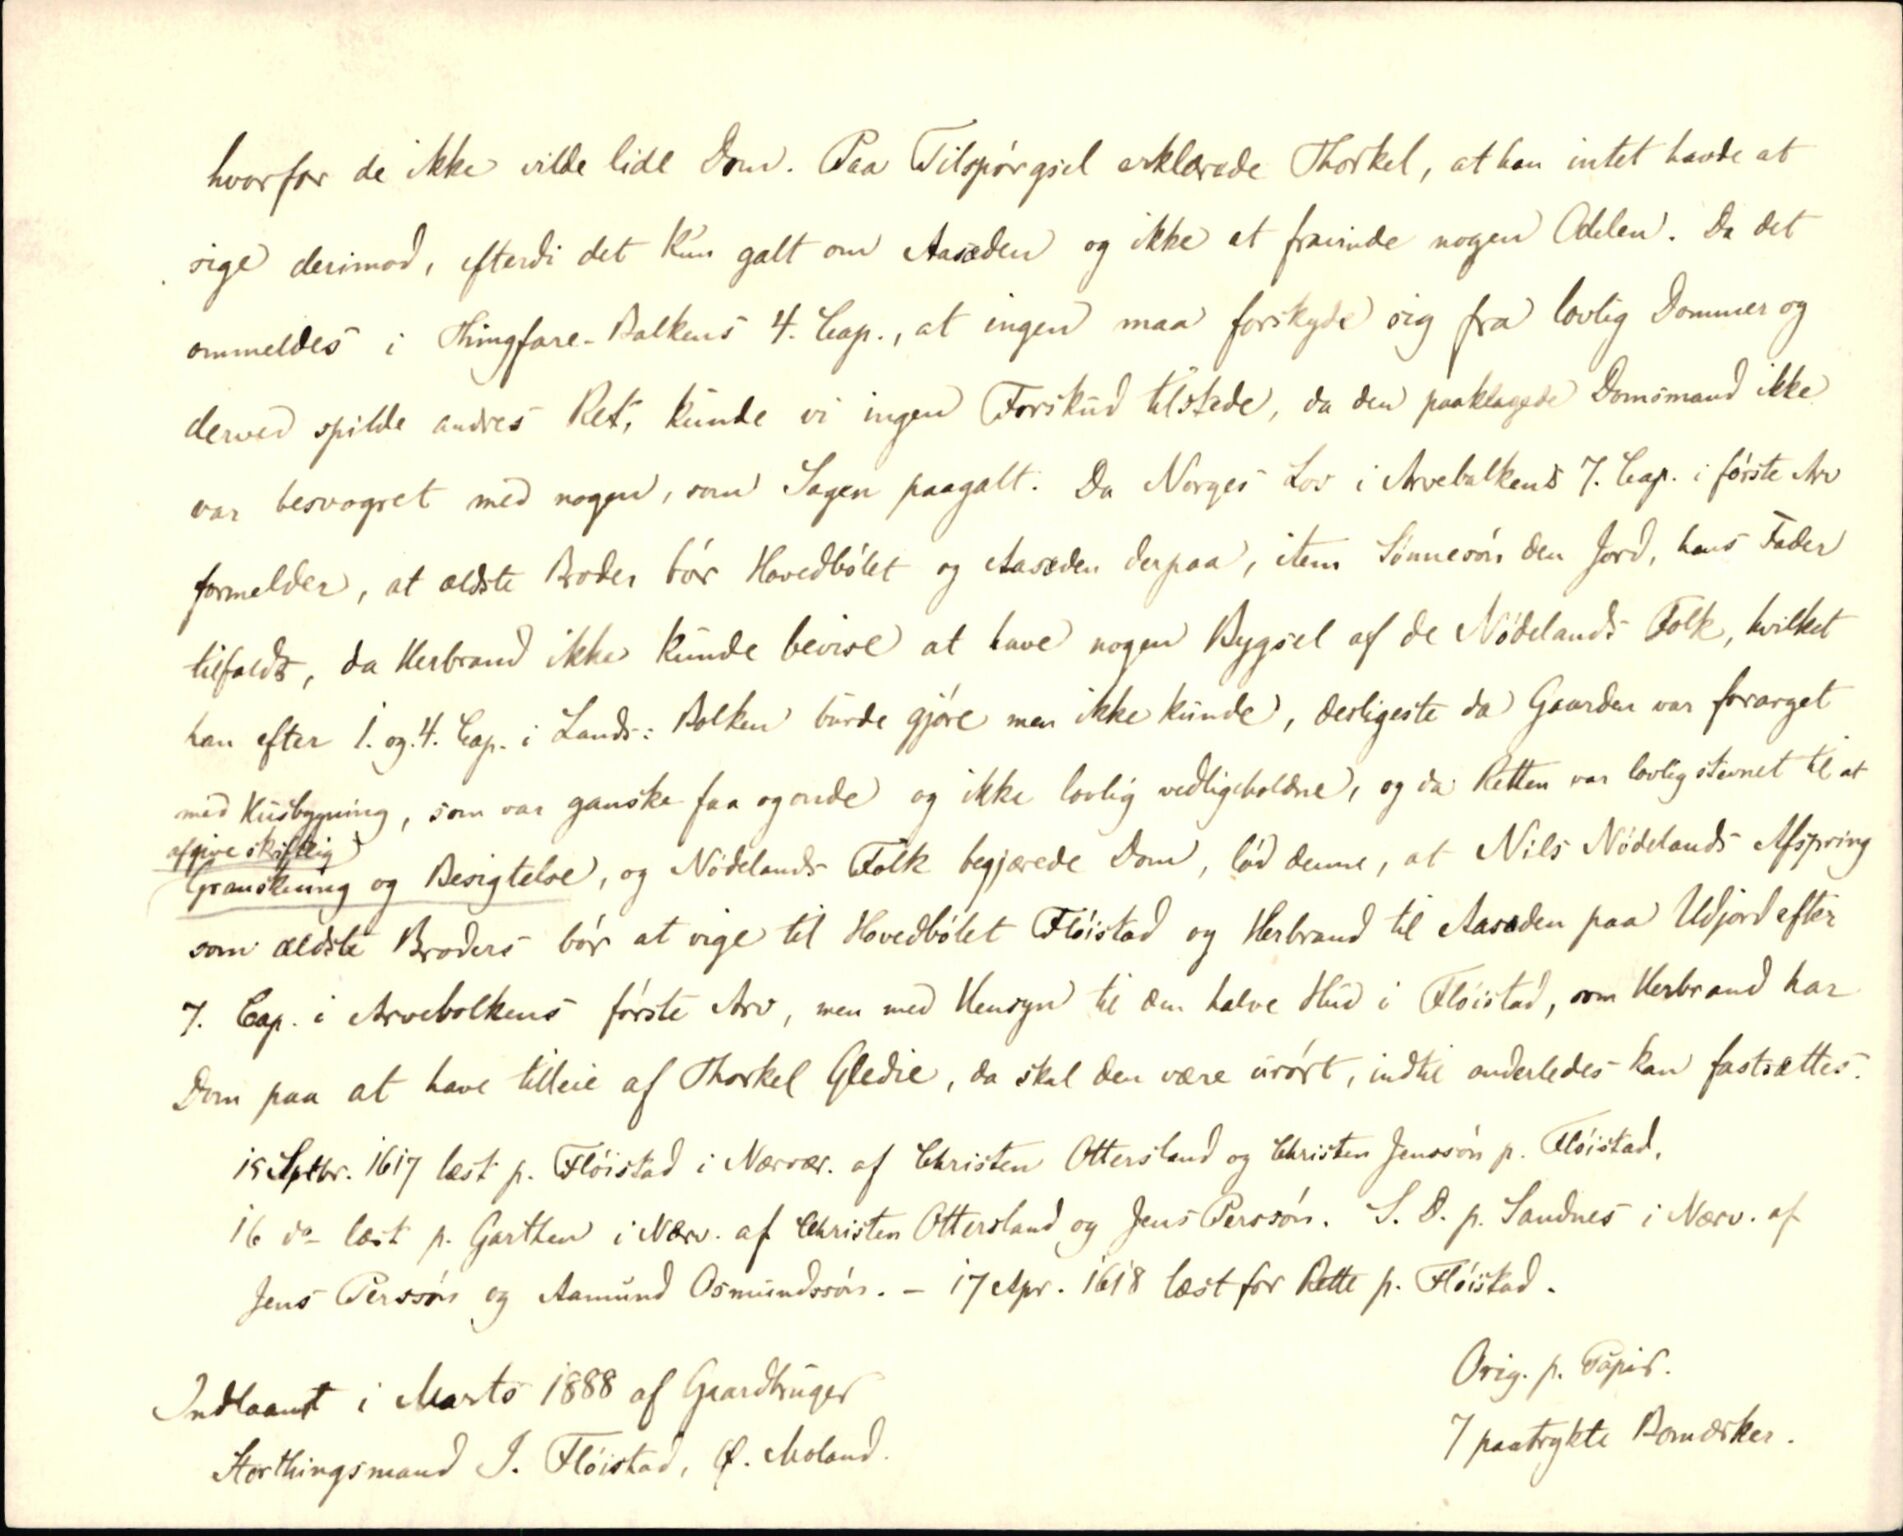 hvorfor de ikke vilde lide Dom. Paa Tilspörgsel erklærede Thorkel, at han intet havde at
sige derimod, efterdi det kun galt om Aasæden og ikke at fravinde nogen Odelen. Da det
ommeldes i Thingfare-Balkens 4. Cap., at ingen maa forskyde sig fra lovlig Dommer og
derved spilde andres Ret, kunde vi ingen Forskud tilstede, da den paaklagede Domsmand ikke
var besvogret med nogen, som Sagen paagalt. Da Norges Lov i Arvebalkens 7. Cap. i förste Arv
formelder, at ældste Broder bör Hovedbölet og Aasæden derpaa, item Sönnesön den Jord, hans Fader
tilfaldt, da Herbrand ikke kunde bevise at have nogen Bygsel af de Nödelands Folk, hvilket
han efter 1. og 4. Cap. i Lands: Bolken burde gjöre men ikke kunde, desligeste da Gaarden var forarget
med Husbygning, som var ganske faa og onde og ikke lovlig vedligeholdne, og da Retten var lovlig stevnet til at
afgive skriftlig
Granskning og Besigtelse, og Nödelands Folk begjærede Dom, löd denne, at Nils Nödelands Afspring
som ældste Broders bör at vige til Hovedbölet Flöistad og Herbrand til Aasæden paa Udjord efter
7. Cap. i Arvebolkens förste Arv, men med Hensyn til den halve Hud i Flöistad, som Herbrand har
Dom paa at have tilleie af Thorkel Gledie, da skal den være urört, indtil anderledes kan fastsættes.
15 Septbr. 1617 læst p. Flöistad i Nærvær. af Christen Ottersland og Christen Jenssön p. Flöistad.
16 do læst p. Garthen i Nærv. af Christen Ottersland og Jens Perssön. S. D. p. Sandnes i Nærv. af
Jens Perssön og Aamund Osmundssön. – 17 Apr. 1618 læst for Rette p. Flöistad.
Orig. p. Papir.
7 paatrykte Bomærker.
Indlaant i Marts 1888 af Gaardbruger
Storthingsmand J. Flöistad, Ö. Moland.